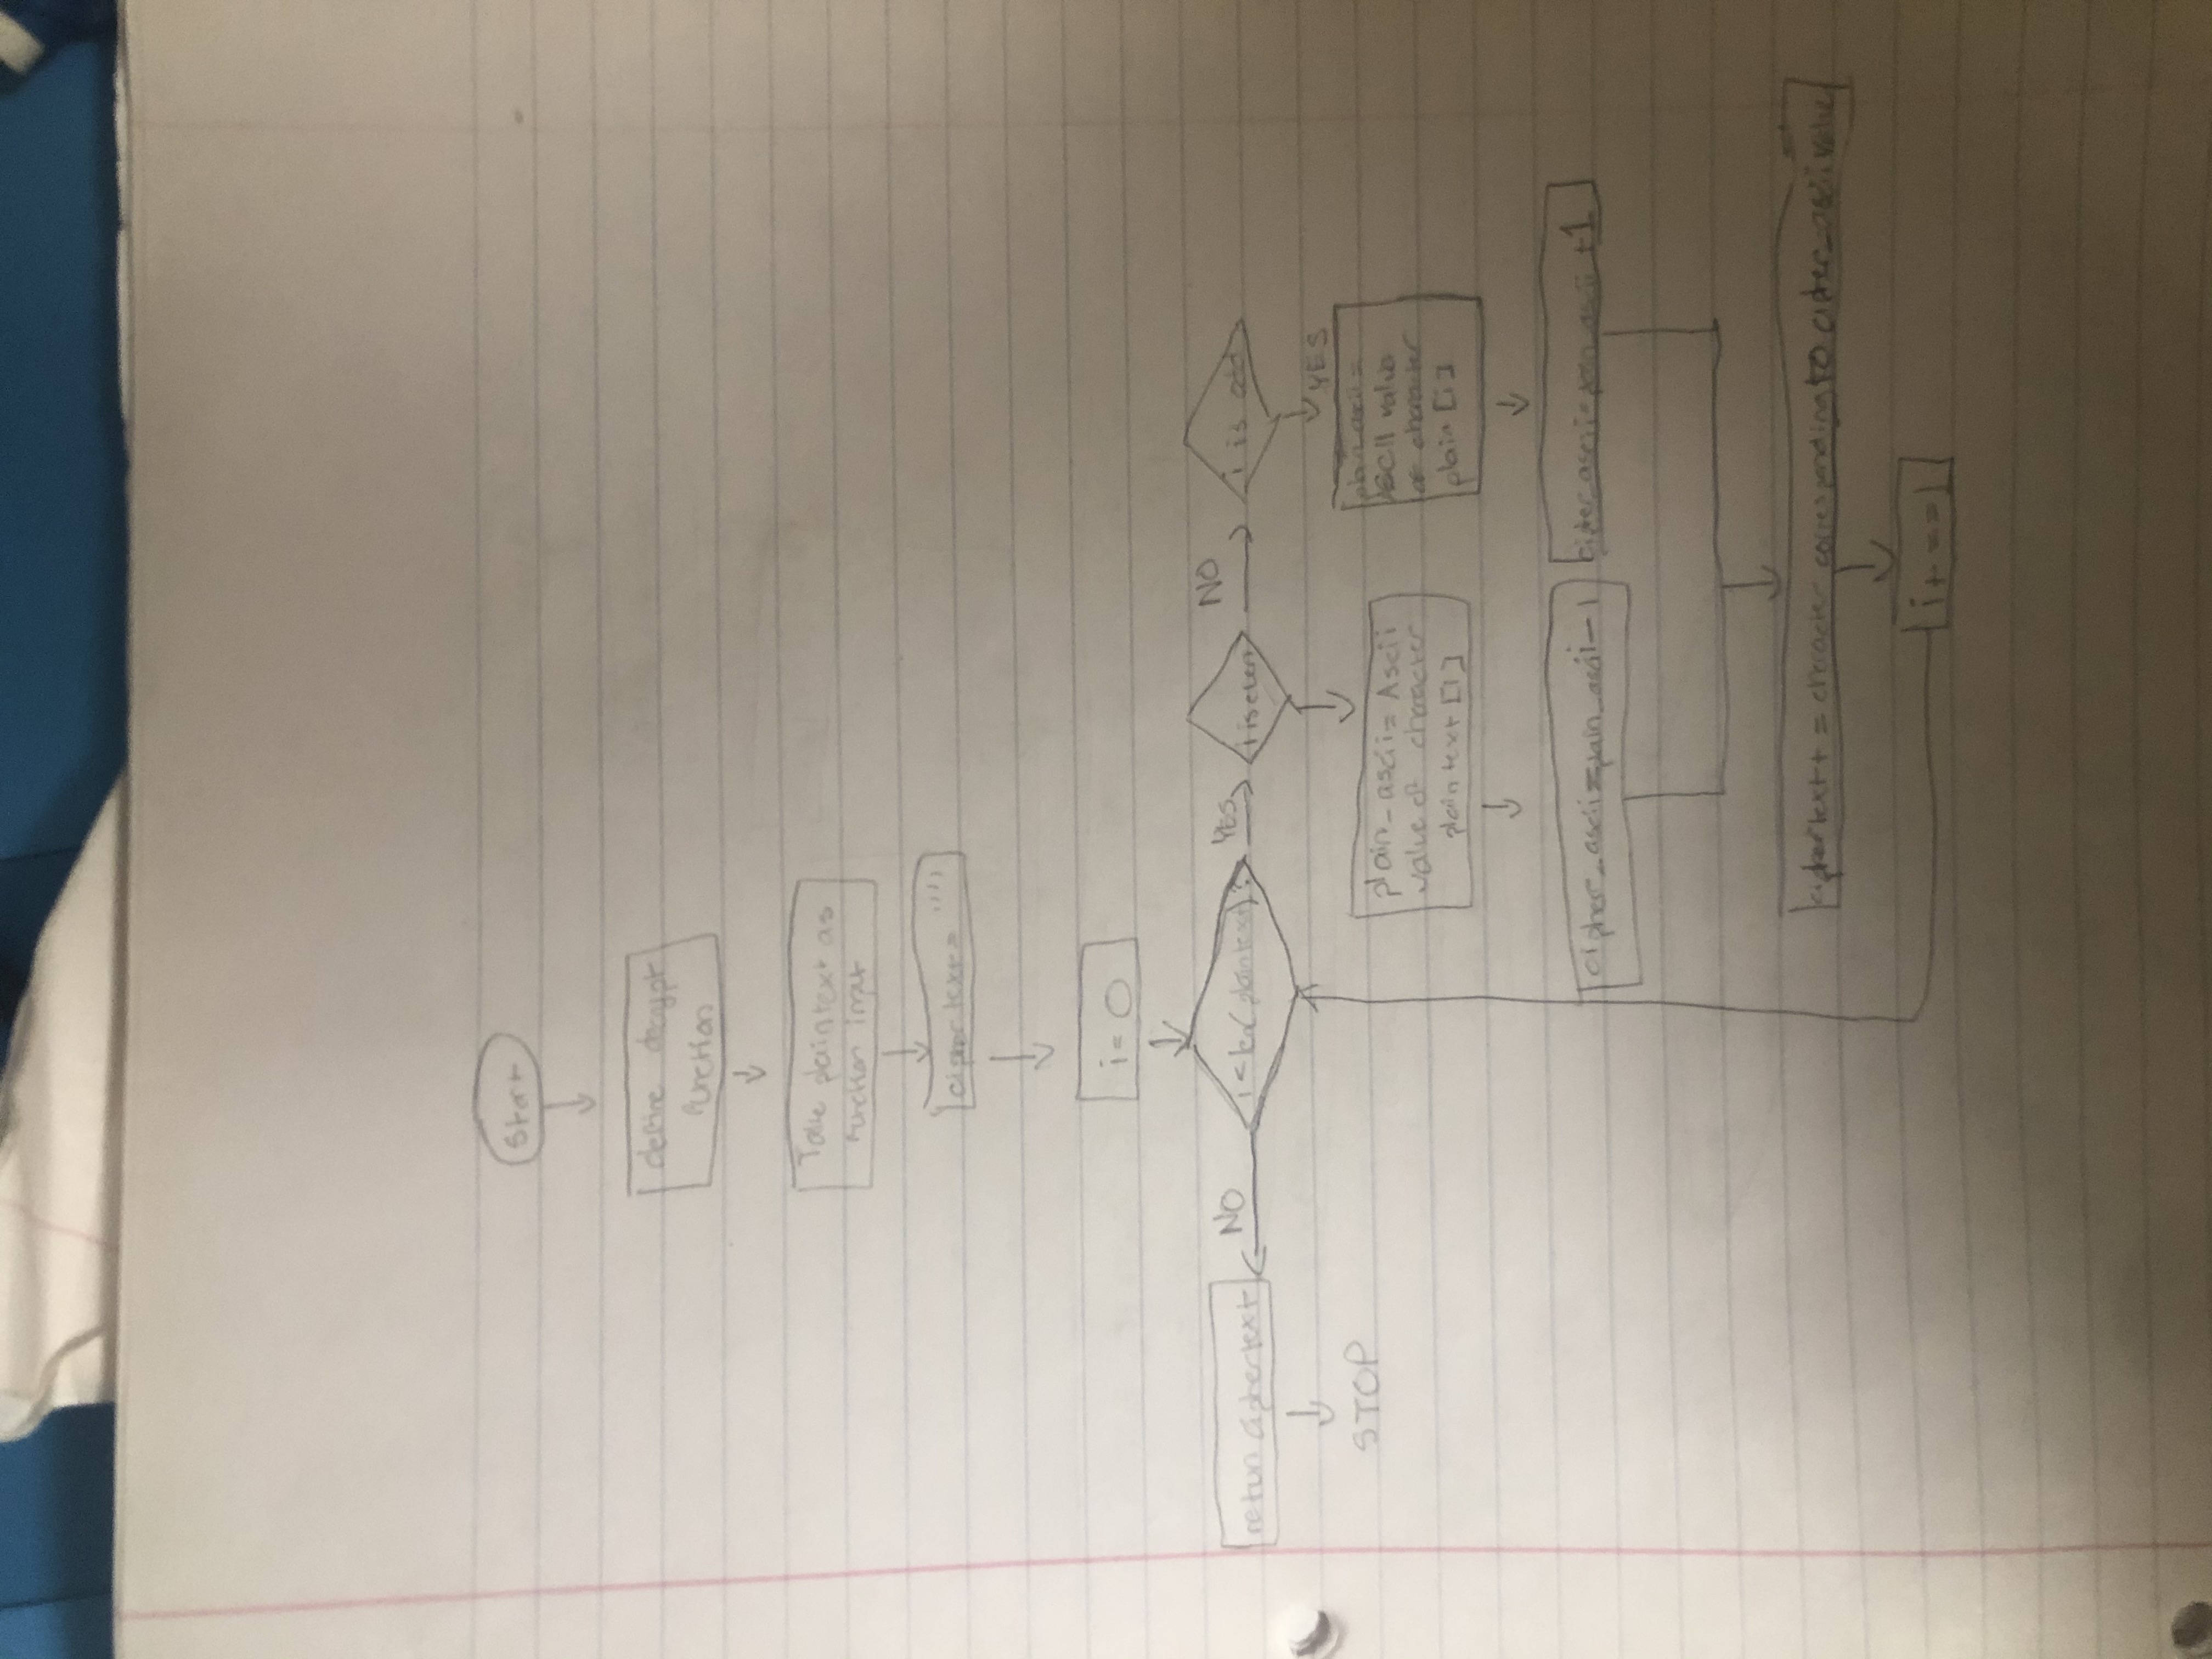 Start
define decrypt
function
Take plaintext as
function input
ciphertext= ""
i= 0
return ciphertext
NO
i<len(plaintext)?
YES
i is even
NO
i is odd
YES
STOP
plain_ascii= Ascii
value of character
plaintext [i]
plain_ascii =
ASCII value
of character
plain [i]
cipher_ascii=plain_ascii-1
cipher_ascii=plain_ascii +1
ciphertext+ = character corresponding to cipher_ascii value
i+ ==1